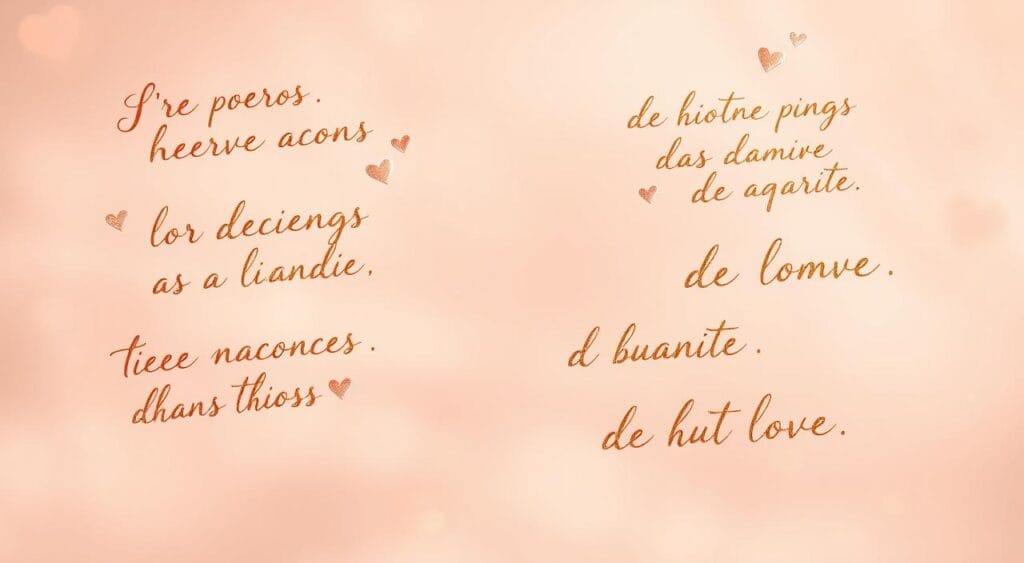 S're poeros.
heerve acons
lor deciengs
as a liandie,
tieee naconces.
dhans thioss
de hiotne pings
das damire
de aqarite.
de lomve.
d buanite.
de hut love.